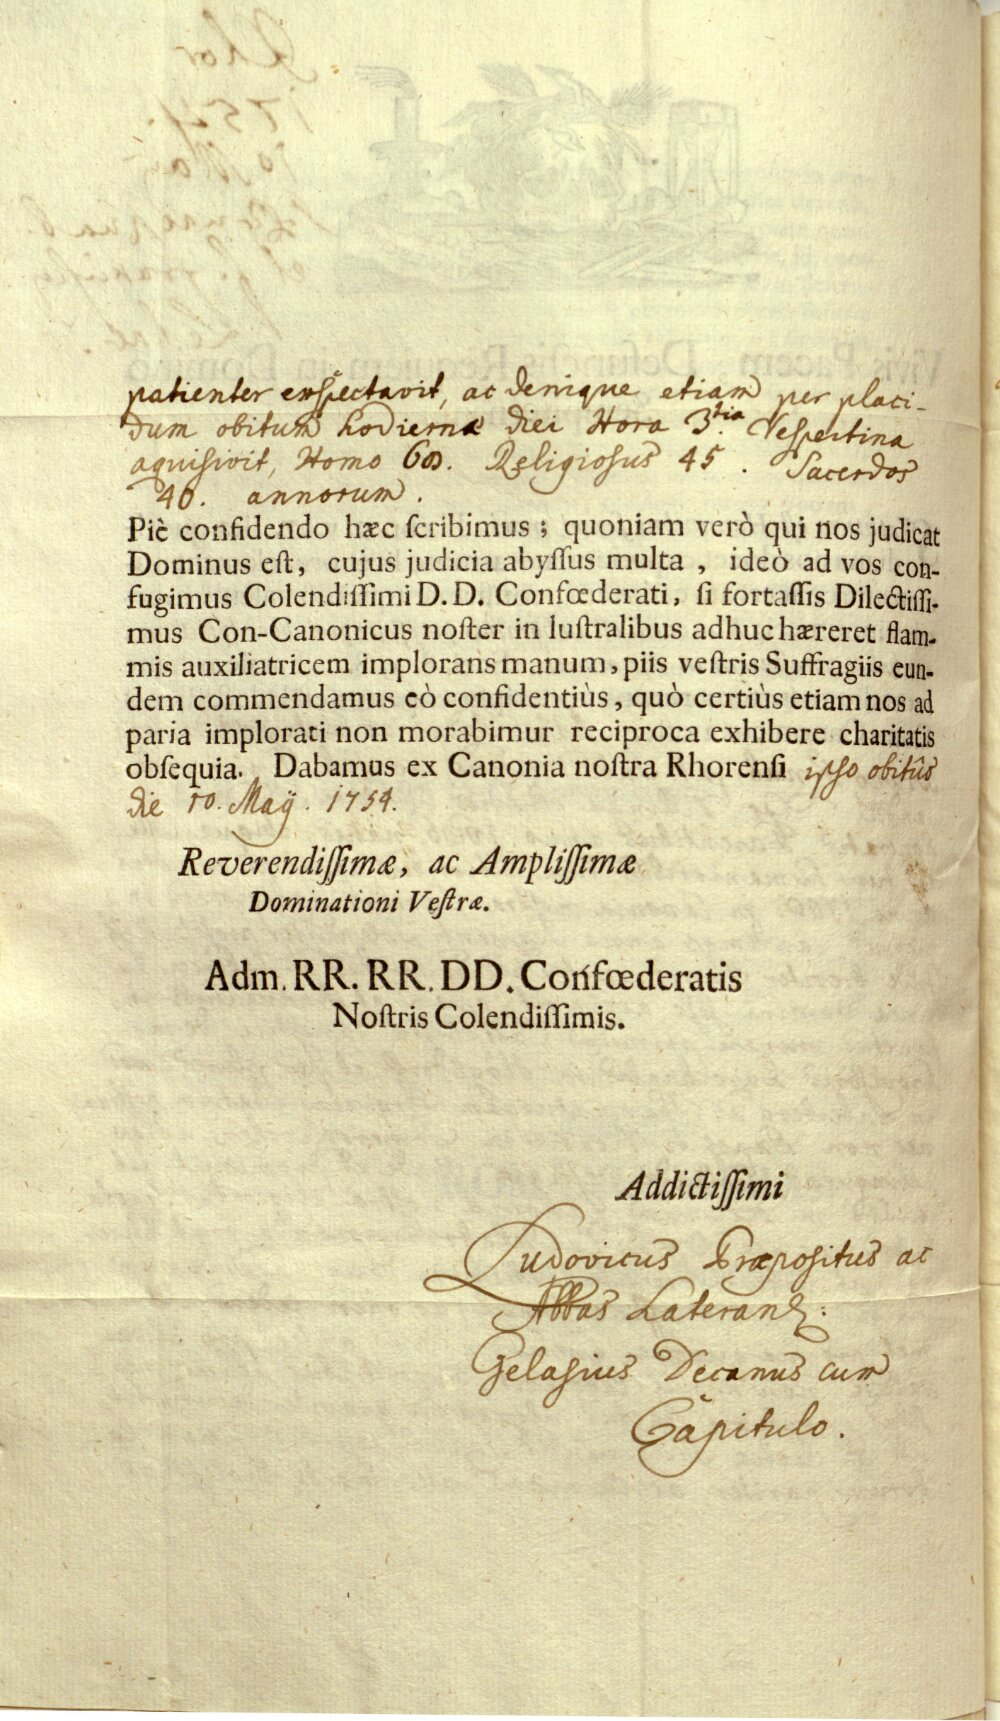 patienter exspectavit, ac denique etiam per placi-
dum obitum hodiernæ diei Hora 3.tia Vespertina
aquisivit, Homo 60. Religiosus 45. Sacerdos
40. annorum.
Piè confidendo hæc ſcribimus; quoniam verò qui nos judicat
Dominus eſt, cujus judicia abyſſus multa, ideò ad vos con-
fugimus Colendiſſimi D. D. Confœderati, ſi fortaſſis Dilectiſſi-
mus Con-Canonicus noſter in luſtralibus adhuc hæreret flam-
mis auxiliatricem implorans manum, piis veſtris Suffragiis eun-
dem commendamus eò confidentiùs, quò certiùs etiam nos ad
paria implorati non morabimur reciproca exhibere charitatis
obſequia. Dabamus ex Canonia noſtra Rhorenſi ipso obitûs
die 10. Maÿ. 1754.
Reverendiſſimæ, ac Ampliſſimæ
Dominationi Veſtræ.
Adm. RR. RR. DD. Confœderatis
Noſtris Colendiſſimis.
Addictiſſimi
Ludovicus Præpositus ac
Abbas Lateran:
Gelasius Decanus cum
Capitulo.